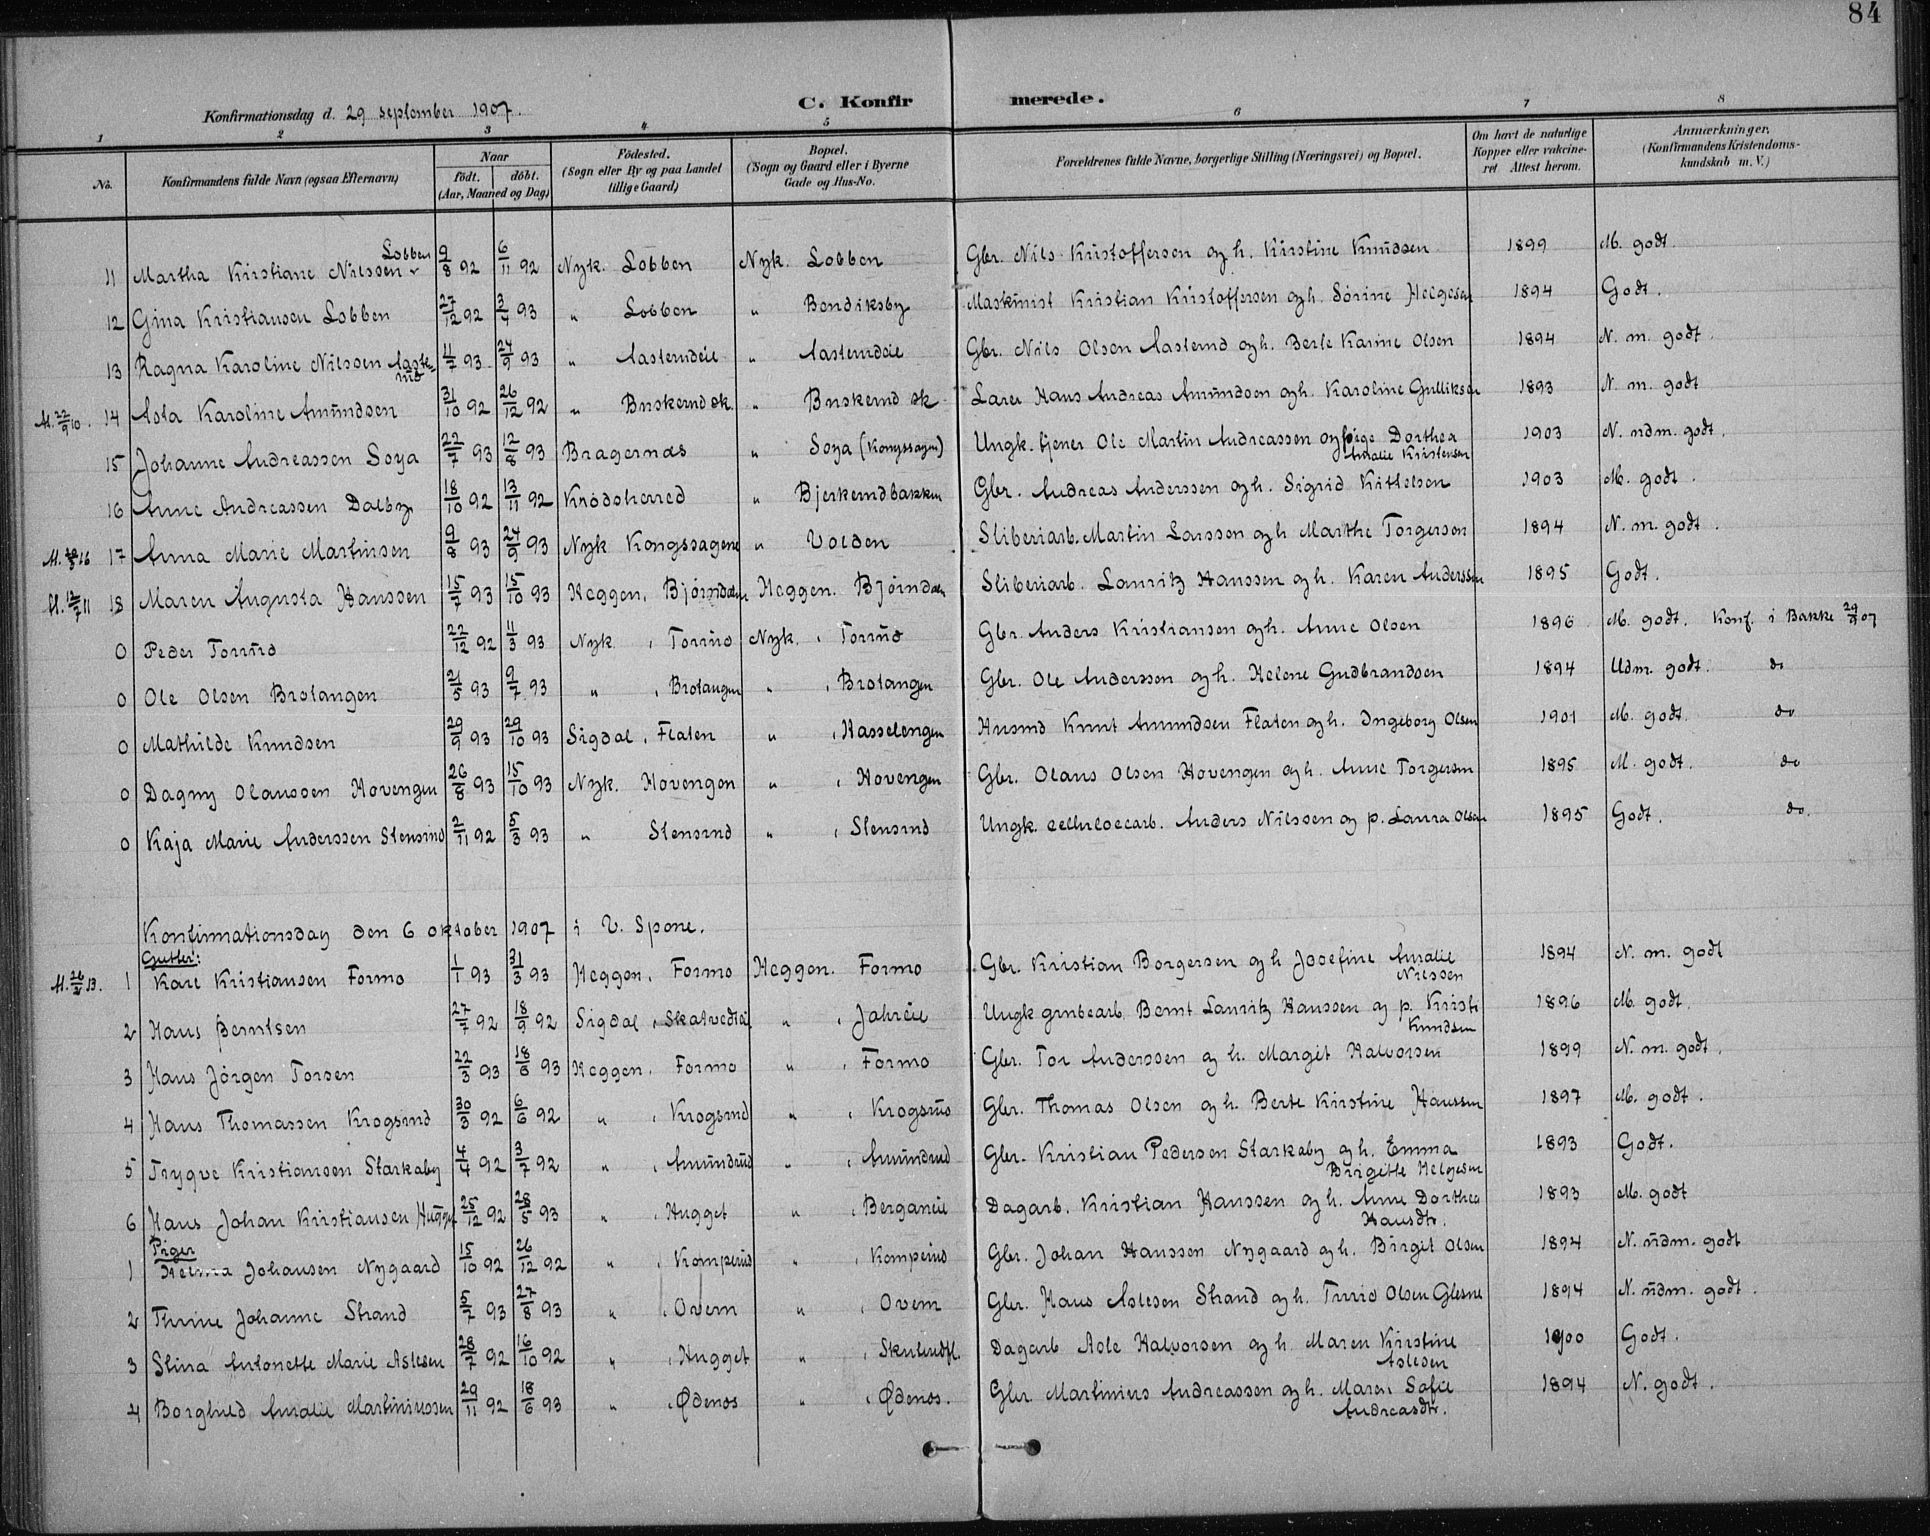 84
Konfirmationsdag d. 29 september 1907.
C. Konfirmerede.
1 2 3 4 5 6 7 8
No. Konfirmandens fulde Navn (ogsaa Efternavn) Naar født. døbt. (Aar, Maaned og Dag) Fødested. (Sogn eller By og paa Landet tillige Gaard) Bopæl. (Sogn og Gaard eller i Byerne Gade og Hus-No. Forældrenes fulde Navne, borgerlige Stilling (Næringsvei) og Bopæl. Om havt de naturlige Kopper eller vakcineret Attest herom. Anmærkninger, (Konfirmandens Kristendomskundskab m. V.)
11 Martha Kirstiane Nilssen Lobben 9/8 92 6/11 92 Nyk. Lobben Nyk. Lobben Gbr. Nils Kristoffersen og h. Kirstine Knudsen 1899 M. godt.
12 Gina Kristiansen Lobben 27/12 92 3/4 93 " Lobben " Bendiksby Maskinist Kristian Kristoffersen og h. Sørine Helgesen 1894 Godt.
13 Ragna Karoline Nilssen Aasterud 11/7 93 24/9 93 " Aasterudeie " Aasterudeie Gbr. Nils Olsen Aasterud og h. Berte Karine Olsen 1894 N. m. godt.
M. 22/9 10. 14 Asta Karoline Amundsen 31/10 92 26/12 92 " Buskerud sk. " Buskerud sk Lærer Hans Andreas Amundsen og h. Karoline Gulliksen 1893 N. m. godt
15 Johanne Andreassen Soya 22/7 93 12/8 93 Bragernæs " Soya (Kongssagen) Ungk. tjener Ole Martin Andreassen og pige Dorthea Amalie Kristensen 1903 N. udm. godt.
16 Anne Andreassen Dalby 18/10 92 13/11 92 Krødsherred " Bjerkerudbakken Gbr. Andreas Anderssen og h. Sigrid Kittelsen 1903 M. godt.
17 Anna Marie Martinsen 9/8 93 24/9 93 Nyk Kongssagene " Volden Sliberiarb. Martin Larssen og h Marthe Torgersen 1894 N. m. godt.
M. 12/7 11 18 Maren Augusta Hanssen 15/7 93 15/10 93 Heggen, Bjørndalen Heggen. Bjørndalen Sliberiarb. Lauritz Hanssen og h. Karen Anderssen 1895 Godt.
0 Peder Torrud 22/12 92 11/3 93 Nyk. , Torrud Nyk. , Torrud Gbr. Anders Kristiansen og h. Anne Olsen 1896 M. godt. Konf. i Bakke 29/9 07
0 Ole Olsen Brotangen 21/5 93 9/7 93 " , Brotangen " , Brotangen Gbr. Ole Anderssen og h. Helene Gudbrandsen 1894 Udm. godt. do
0 Mathilde Knudsen 29/9 93 29/10 93 Sigdal, Flaten " , Hasselengen Husmd Knut Amundsen Flaten og h. Ingeborg Olsen 1901 M. godt. do
0 Dagny Olaussen Hovengen 26/8 93 15/10 93 Nyk. Hovengen " , Hovengen Gbr. Olaus Olsen Hovengen og h. Anne Torgersen 1895 M. godt. do
0 Kaja Marie Anderssen Stensrud 2/11 92 5/3 93 " Stensrud " , Stensrud Ungk. cellulosearb. Anders Nilssen og p. Laura Olsen 1895 Godt. do.
Konfirmationsdag den 6 oktober 1907 i V. Spone.
Gutter:
M. 26/2 13. 1 Karl Kristiansen Formo 1/1 93 31/3 93 Heggen, Formo Heggen. Formo Gbr. Kristian Borgersen og h Josefine Amalie Nilssen 1894 N. m. godt
2 Hans Berntsen 27/7 92 18/9 92 Sigdal, Skatvedteie " , Jahreie Ungk grubearb. Bernt Lauritz Hanssen og p. Kirsti Knudsen 1896 M. godt.
3 Hans Jørgen Torsen 22/3 93 18/6 93 Heggen, Formo " , Formo Gbr. Tor Anderssen og h. Margit Halvorsen 1899 N. m. godt.
4 Hans Thomassen Krogsrud 30/3 92 6/6 92 " , Krogsrud " , Krogsrud Gbr. Thomas Olsen og h. Berte Kirstine Hanssen 1897 M. godt.
5 Trygve Kristiansen Starkaby 4/4 92 3/7 92 " , Amundrud " , Amundrud Gbr. Kristian Pedersen Starkaby og h. Emma Birgitte Helgesen 1893 Godt.
6 Hans Johan Kristiansen Hugget 25/12 92 28/5 93 " , Hugget " , Berganeie Dagarb. Kristian Hanssen og h. Anne Dorthea Hansdtr. 1893 M. godt
Piger
1 Helma Johansen Nygaard 15/10 92 26/12 92 " , Komperud " , Komperud Gbr. Johan Hanssen Nygaard og h. Birgit Olsen 1894 N. udm. godt
2 Thrine Johanne Strand 5/7 93 27/8 93 " , Overn " , Overn Gbr. Hans Aslesen Strand og h. Turid Olsen Glesne 1894 N. udm. godt.
3 Stina Antonette Marie Aslesen 28/7 92 16/10 92 " , Hugget " , Skuterudfl. Dagarb Asle Halvorsen og h. Maren Kirstine Aslesen 1900 Godt.
4 Borghild Amalie Martiniussen 29/11 92 18/6 93 " , Ødenes " , Ødenes. Gbr Martinius Andreassen og h. Maren Sofie Andreasdtr. 1894 N. godt.